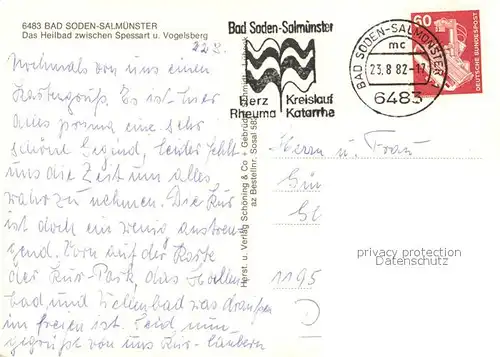 6483 BAD SODEN-SALMÜNSTER
Das Heilbad zwischen Spessart u. Vogelsberg
22.8.
Nochmals von uns einen
Kartengruß. Es ist hier
alles prima eine sehr
schöne Gegend, leider fehlt
uns die Zeit um alles
wahr zu nehmen. Die Kur
ist doch ein wenig anstren
gend. Vorn auf der Karte
der Kur-Park, das Hallen
bad und Wellenbad was draußen
im freien ist. Seid nun
gegrüßt von uns Kur-laubern
Herst. u. Verlag Schöning & Co Gebrüder Schmidt
az Bestellnr. Sosal
Bad Soden-Salmünster
Herz Kreislauf
Rheuma Katarrhe
BAD SODEN-SALMÜNSTER 1
mc
23.8.82-17
6483
60
DEUTSCHE BUNDESPOST
Herrn u. Frau
Gün
1195
privacy protection
Datenschutz